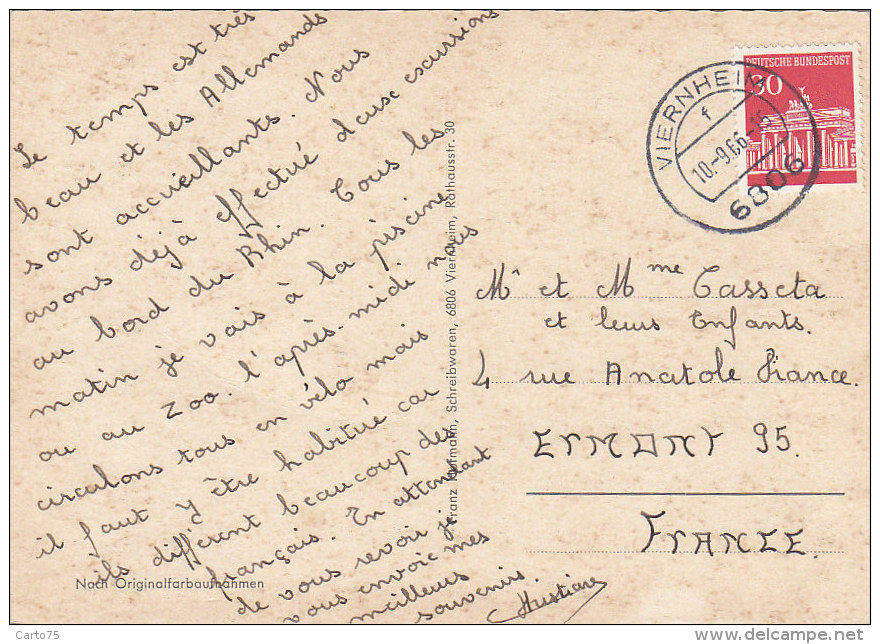 Le temps est très
beau et les Allemands
sont accueillants. Nous
avons déjà effectué deux escursions
au bord du Rhin. Tous les
matin je vais à la piscine
ou au zoo. l'après-midi nous
circulons tous en vélo mais
il faut y être habitué car
ils diffèrent beaucoup des
français. En attendant
de vous revoir je
vous envoie mes
meilleurs
souvenirs.
Christiane
Noch Originalfarbaufnahmen
Franz Kaufmann, Schreibwaren, 6806 Viernheim, Rathausstr. 30
DEUTSCHE BUNDESPOST
30
VIERNHEIM
f
10.-9.66-15
6806
Mr et Mme Casseta
et leurs Enfants.
4 rue Anatole France.
ERMONT 95.
FRANCE
Carto75
www.delcampe.net